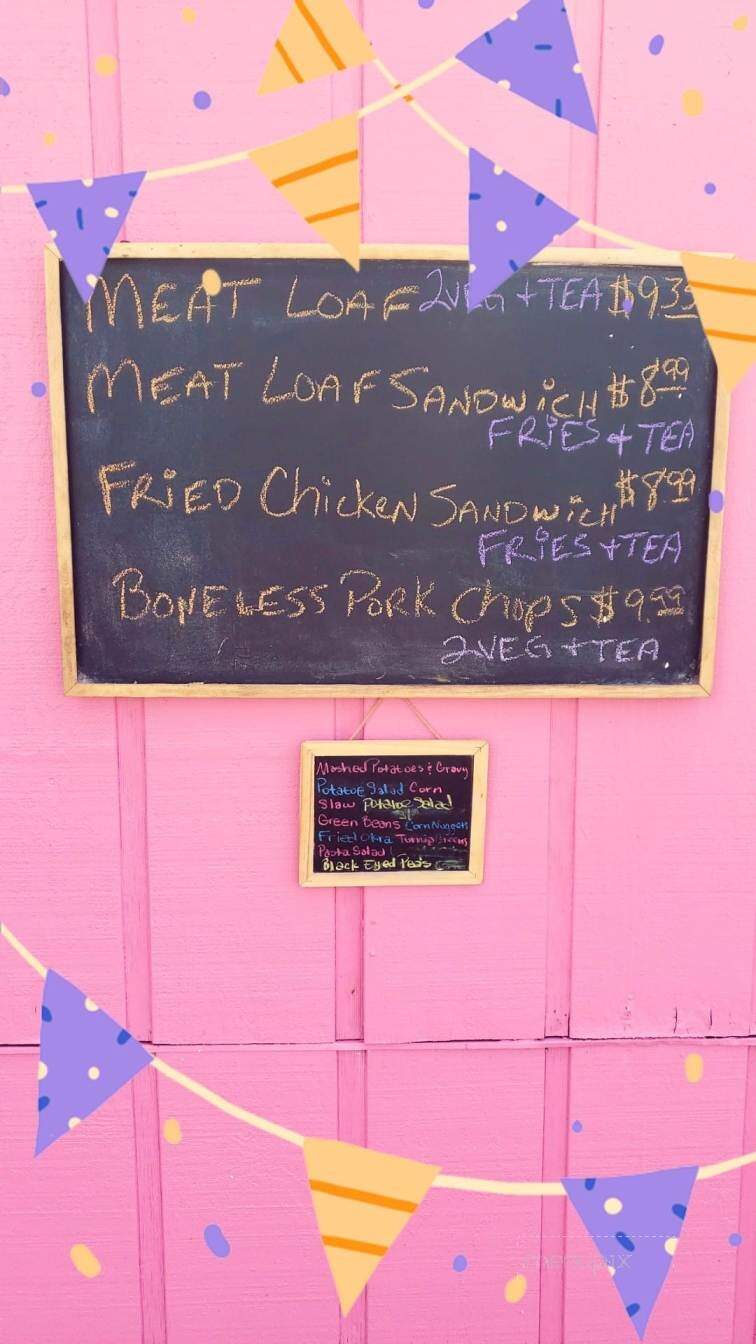 MEAT LOAF 2VEG + TEA $9.35
MEAT LOAF SANDWICH $8.99
FRIES + TEA
FRIED Chicken SANDWICH $8.99
FRIES + TEA
BONELESS PORK Chops $9.99
2VEG + TEA
Mashed Potatoes & Gravy
Potatoe Salad Corn
Slaw Potatoe Salad
Green Beans Corn Nuggets
Fried Okra Turnip Greens
Pasta Salad
Black Eyed Peas